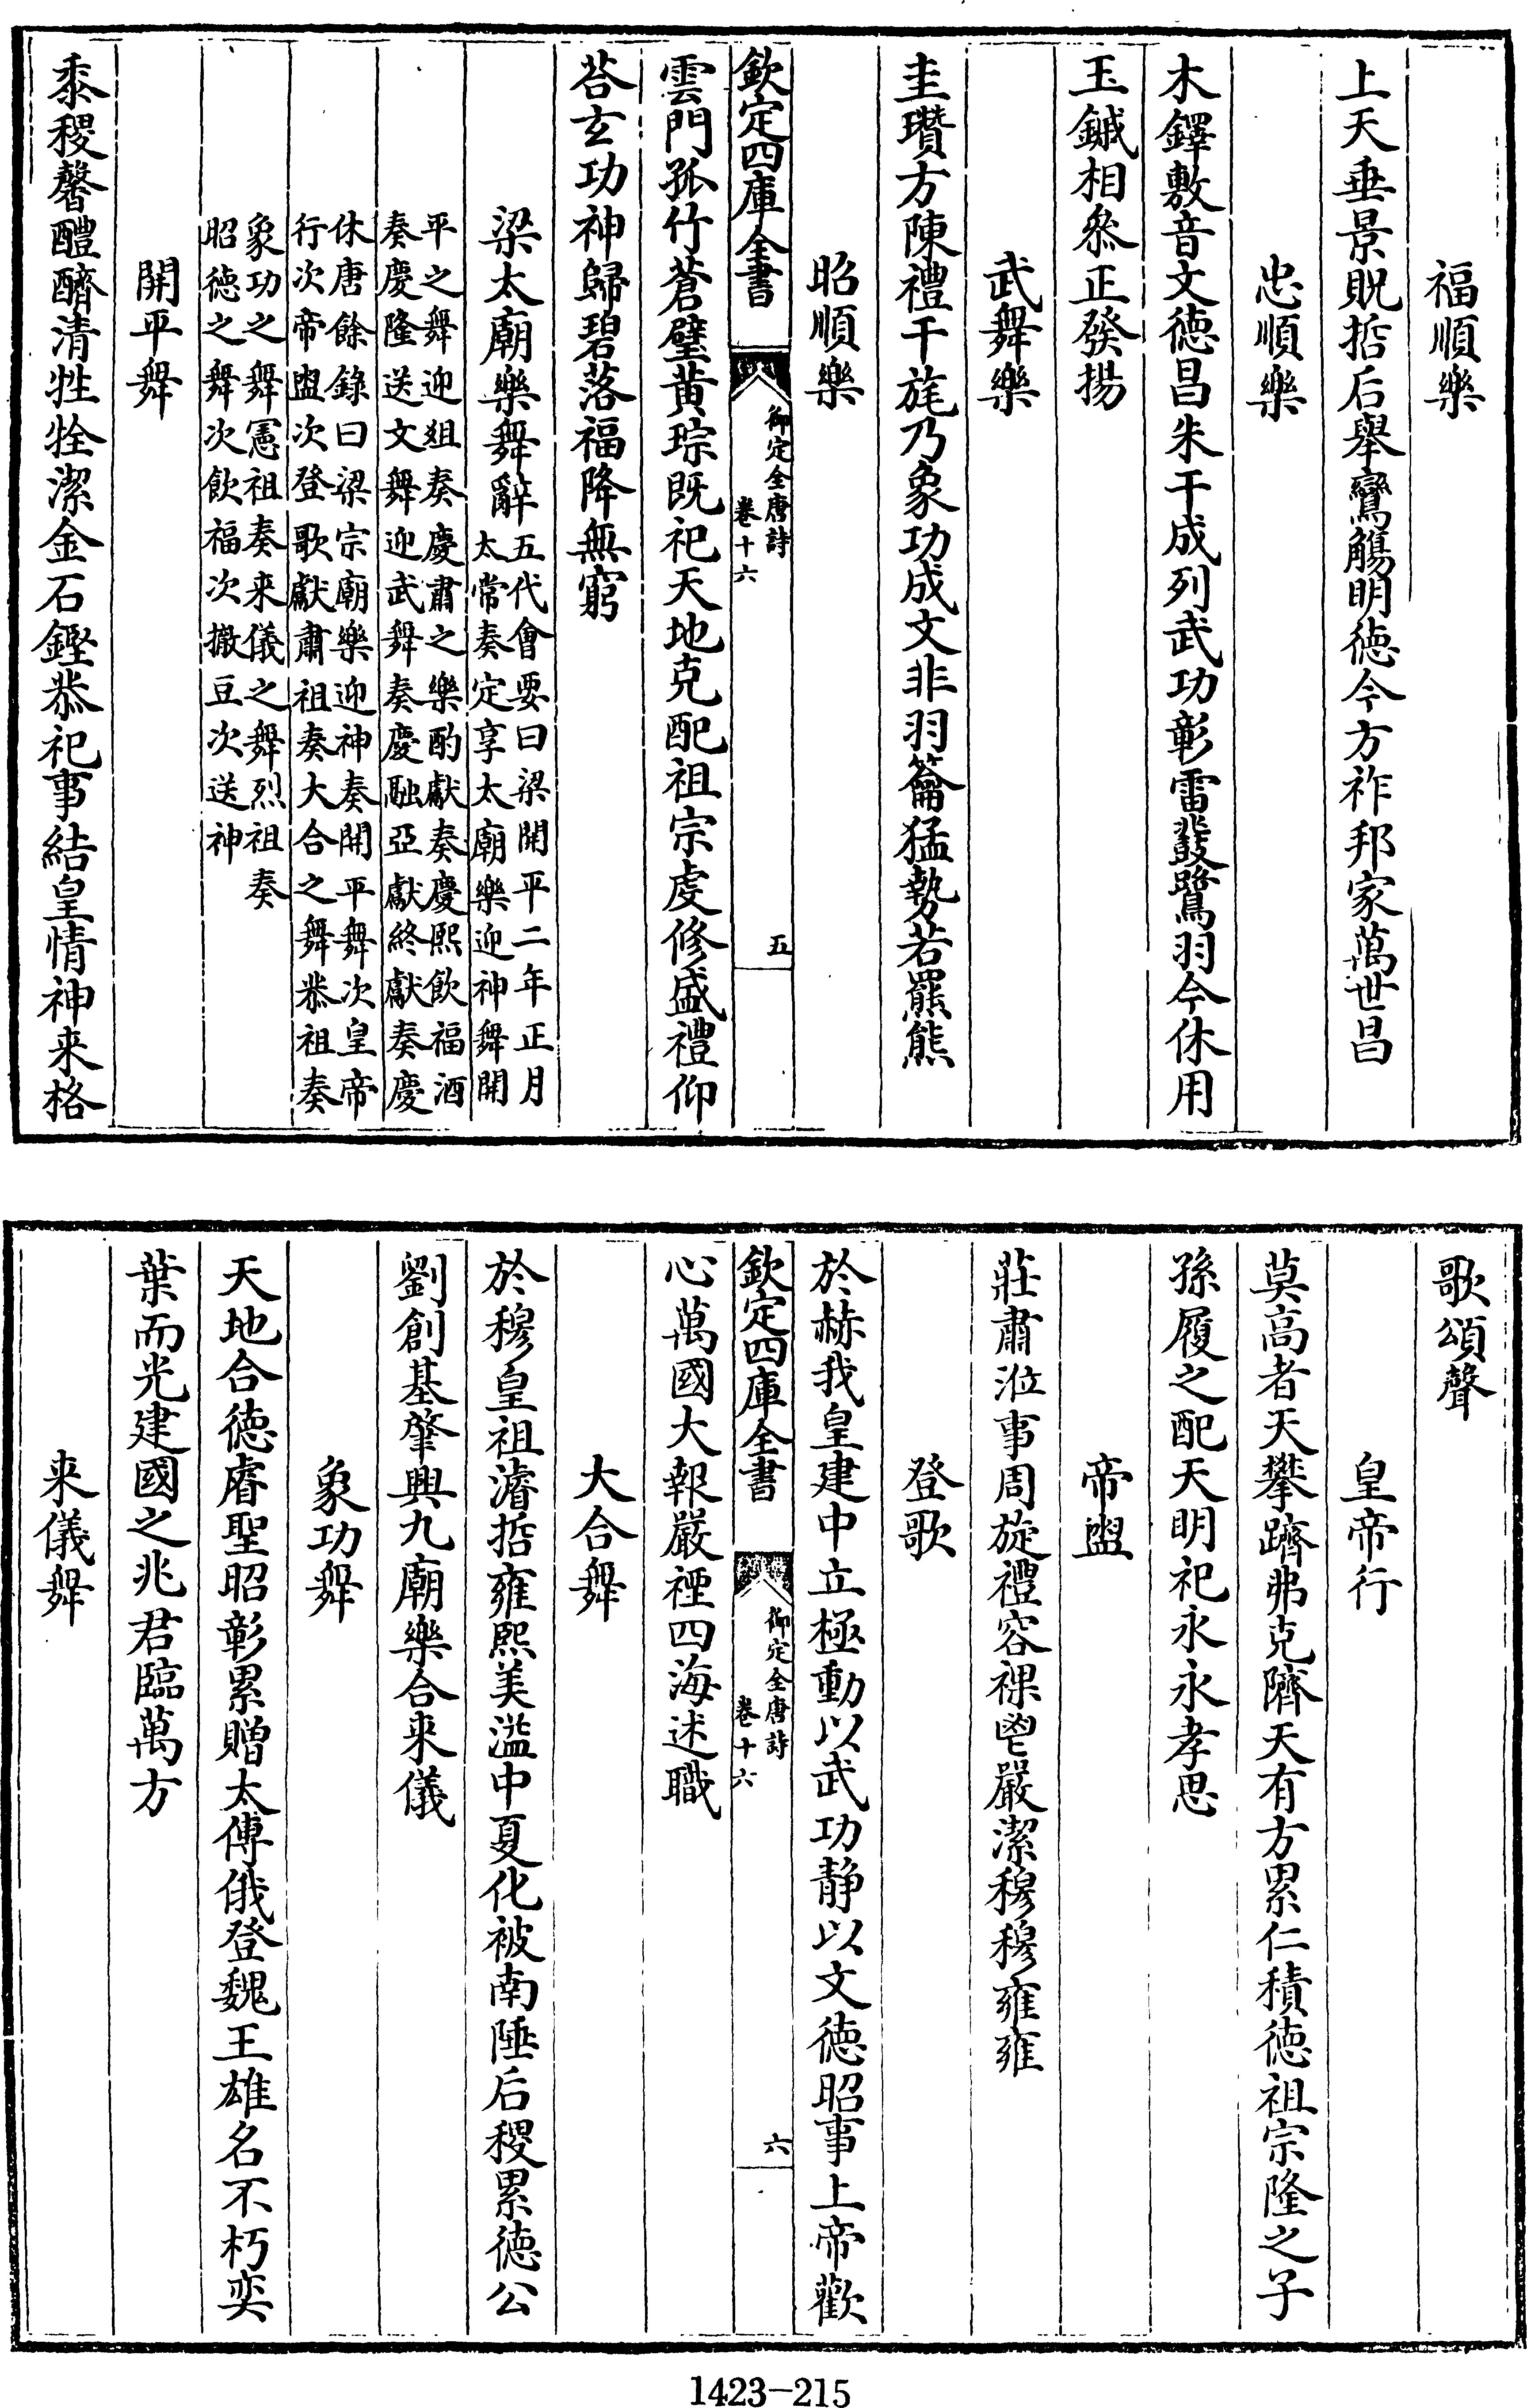 福順樂
上天垂景貺哲后舉鸞觴明徳今方祚邦家萬世昌
忠順樂
木鐸敷音文徳昌朱干成列武功彰雷鼗鷺羽今休用
玉鏚相叅正發揚
武舞樂
圭瓚方陳禮干旄乃象功成文非羽籥猛勢若羆熊
昭順樂
欽定四庫全書
御定全唐詩
卷十六
五
雲門孤竹蒼璧黄琮既祀天地克配祖宗虔修盛禮仰
荅玄功神歸碧落福降無窮
梁太廟樂舞辭
五代會要曰梁開平二年正月
太常奏定享太廟樂迎神舞開
平之舞迎俎奏慶肅之樂酌獻奏慶熙飲福酒
奏慶隆送文舞迎武舞奏慶融亞獻終獻奏慶
休唐餘錄曰梁宗廟樂迎神奏開平舞次皇帝
行次帝盥次登歌獻肅祖奏大合之舞恭祖奏
象功之舞憲祖奏来儀之舞烈祖奏
昭徳之舞次飲福次撤豆次送神
開平舞
黍稷馨醴齊清牲牷潔金石鏗恭祀事結皇情神来格
歌頌聲
皇帝行
莫高者天攀躋弗克隮天有方累仁積徳祖宗隆之子
孫履之配天明祀永永孝思
帝盥
莊肅涖事周旋禮容祼鬯嚴潔穆穆雍雍
登歌
於赫我皇建中立極動以武功静以文徳昭事上帝歡
欽定四庫全書
御定全唐詩
卷十六
六
心萬國大報嚴禋四海述職
大合舞
於穆皇祖濬哲雍熙美溢中夏化被南陲后稷累徳公
劉創基肇興九廟樂合来儀
象功舞
天地合徳睿聖昭彰累贈太傅俄登魏王雄名不朽奕
葉而光建國之兆君臨萬方
来儀舞
1423-215